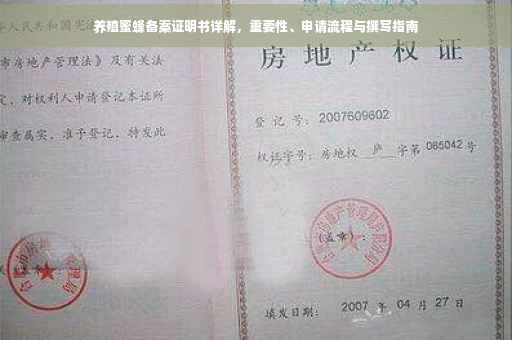 养殖蜜蜂备案证明书详解，重要性、申请流程与撰写指南
人民共和国宪
市房地产管理法》及有关
定，对权利人申请登记本证所
审查属实，准予登记，特发此
房地产权证
登记号：2007609602
权证字号：房地权 庐 字第 085042 号
（盖章）：
填发日期：2007 年 04 月 27 日